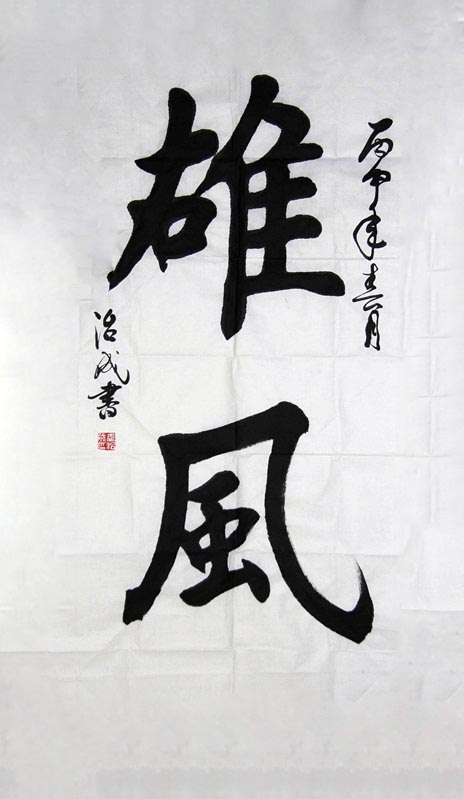 丙申年春月
雄風
治成書